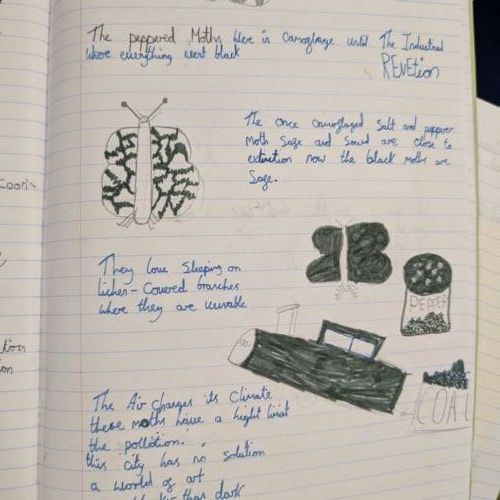 The peppered Moths Were in Camoflarge until The Industrial
where everything went black REvetion
The once camoflaged Salt and pepper
moth Safe and Sound are close to
extinction now the black moths are
Safe.
They love Sleeping on
lichen - Covered branches
where they are
PEPPER
COAL
The Air changes its climate
these moths have a
the pollition.
this city has no solution
a world of art
dark